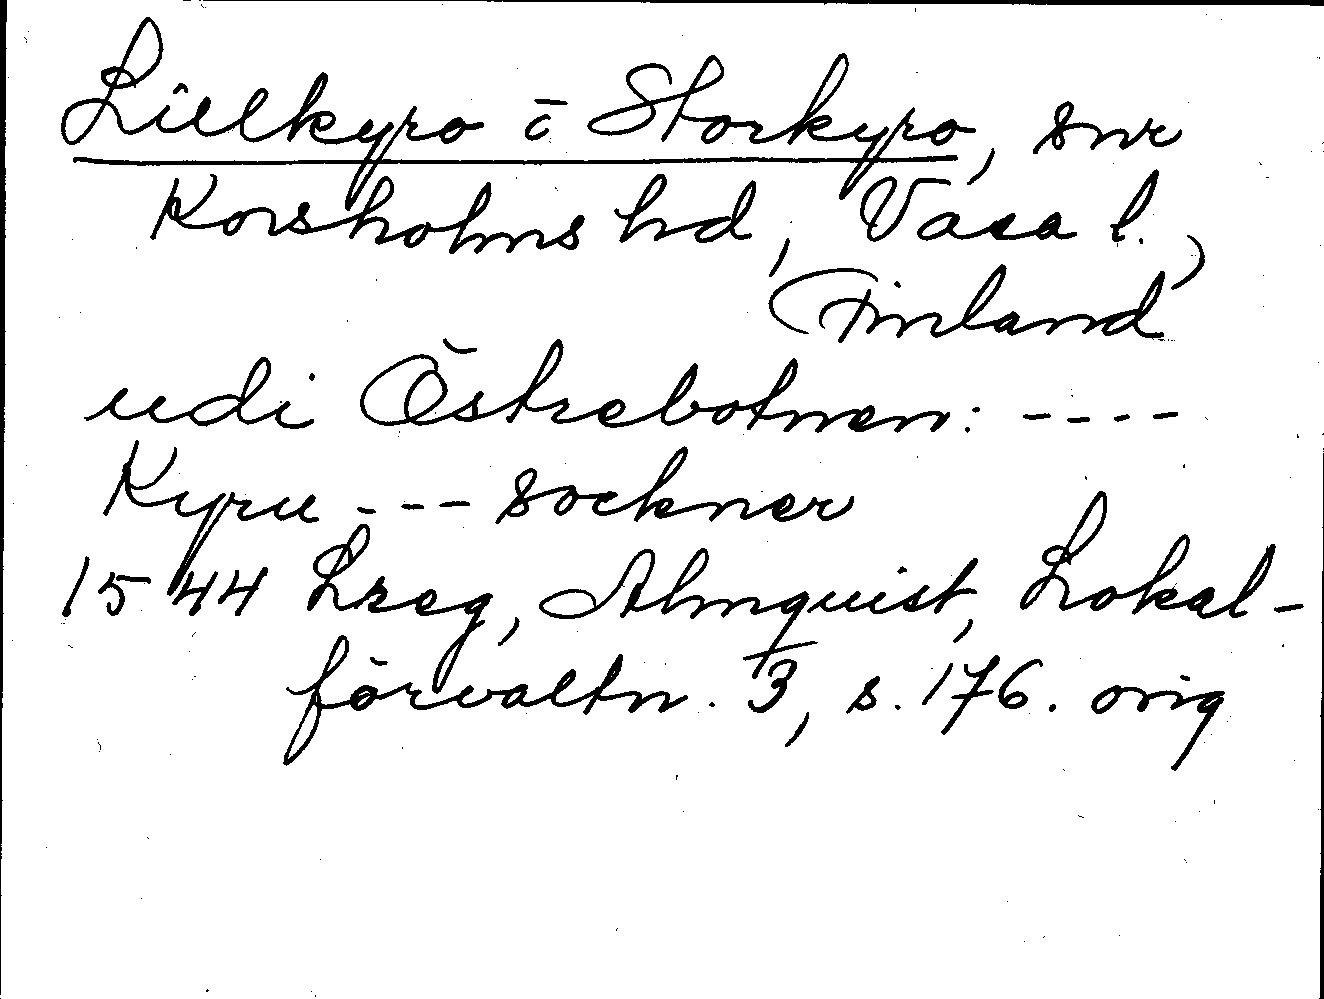 Lillkyro o Storkyro, snr
Korsholms hd, Vasa l.,
Finland
udi Östrebotnen: ----
Kyru --- sockner
1544 Lreg, Almquist, Lokal-
förvaltn. 3, s. 176. orig